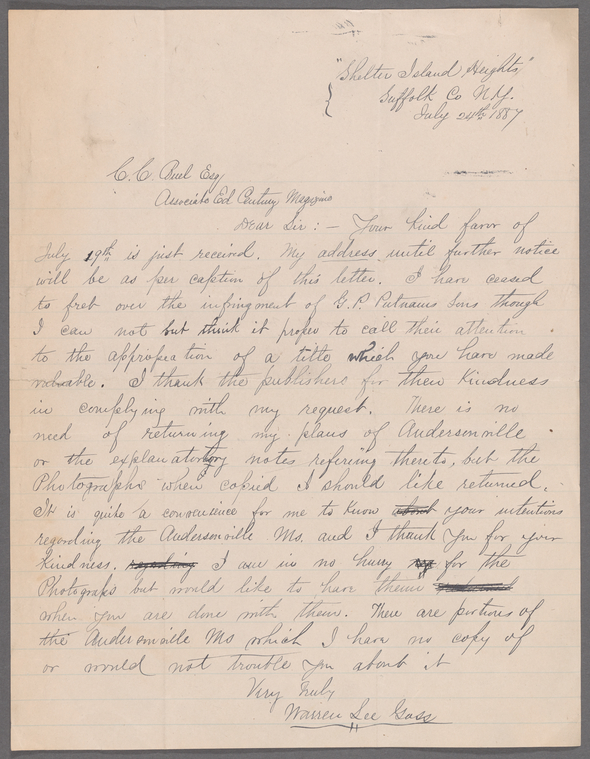 "Shelter Island Heights"
Suffolk Co N.Y.
July 24th 1887
C. C. Buel Esq
Associate Ed Century Magazine
Dear Sir: — Your kind favor of
July 19th is just received. My address until further notice
will be as per caption of this letter. I have ceased
to fret over the infringment of G. P. Putnams Sons though
I can not but think it proper to call their attention
to the appropeation of a title which you have made
valuable. I thank the publishers for their kindness
in complying with my request. There is no
need of returning my plans of Andersonville
or the explanatory notes refering thereto, but the
Photographs when copied I should like returned.
It is quite a convenience for me to know about your intentions
regarding the Andersonville Ms. and I thank you for your
kindness. regarding I am in no hurry for the
Photograps but would like to have them
when you are done with them. There are portions of
the Andersonville Ms which I have no copy of
or would not trouble you about it
Very Truly
Warren Lee Goss